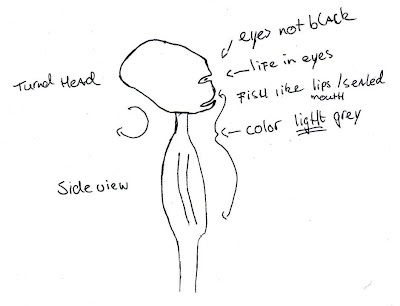 eyes not black
Turnd Head
life in eyes
Fish like lips/sealed
mouth
color light grey
Side view